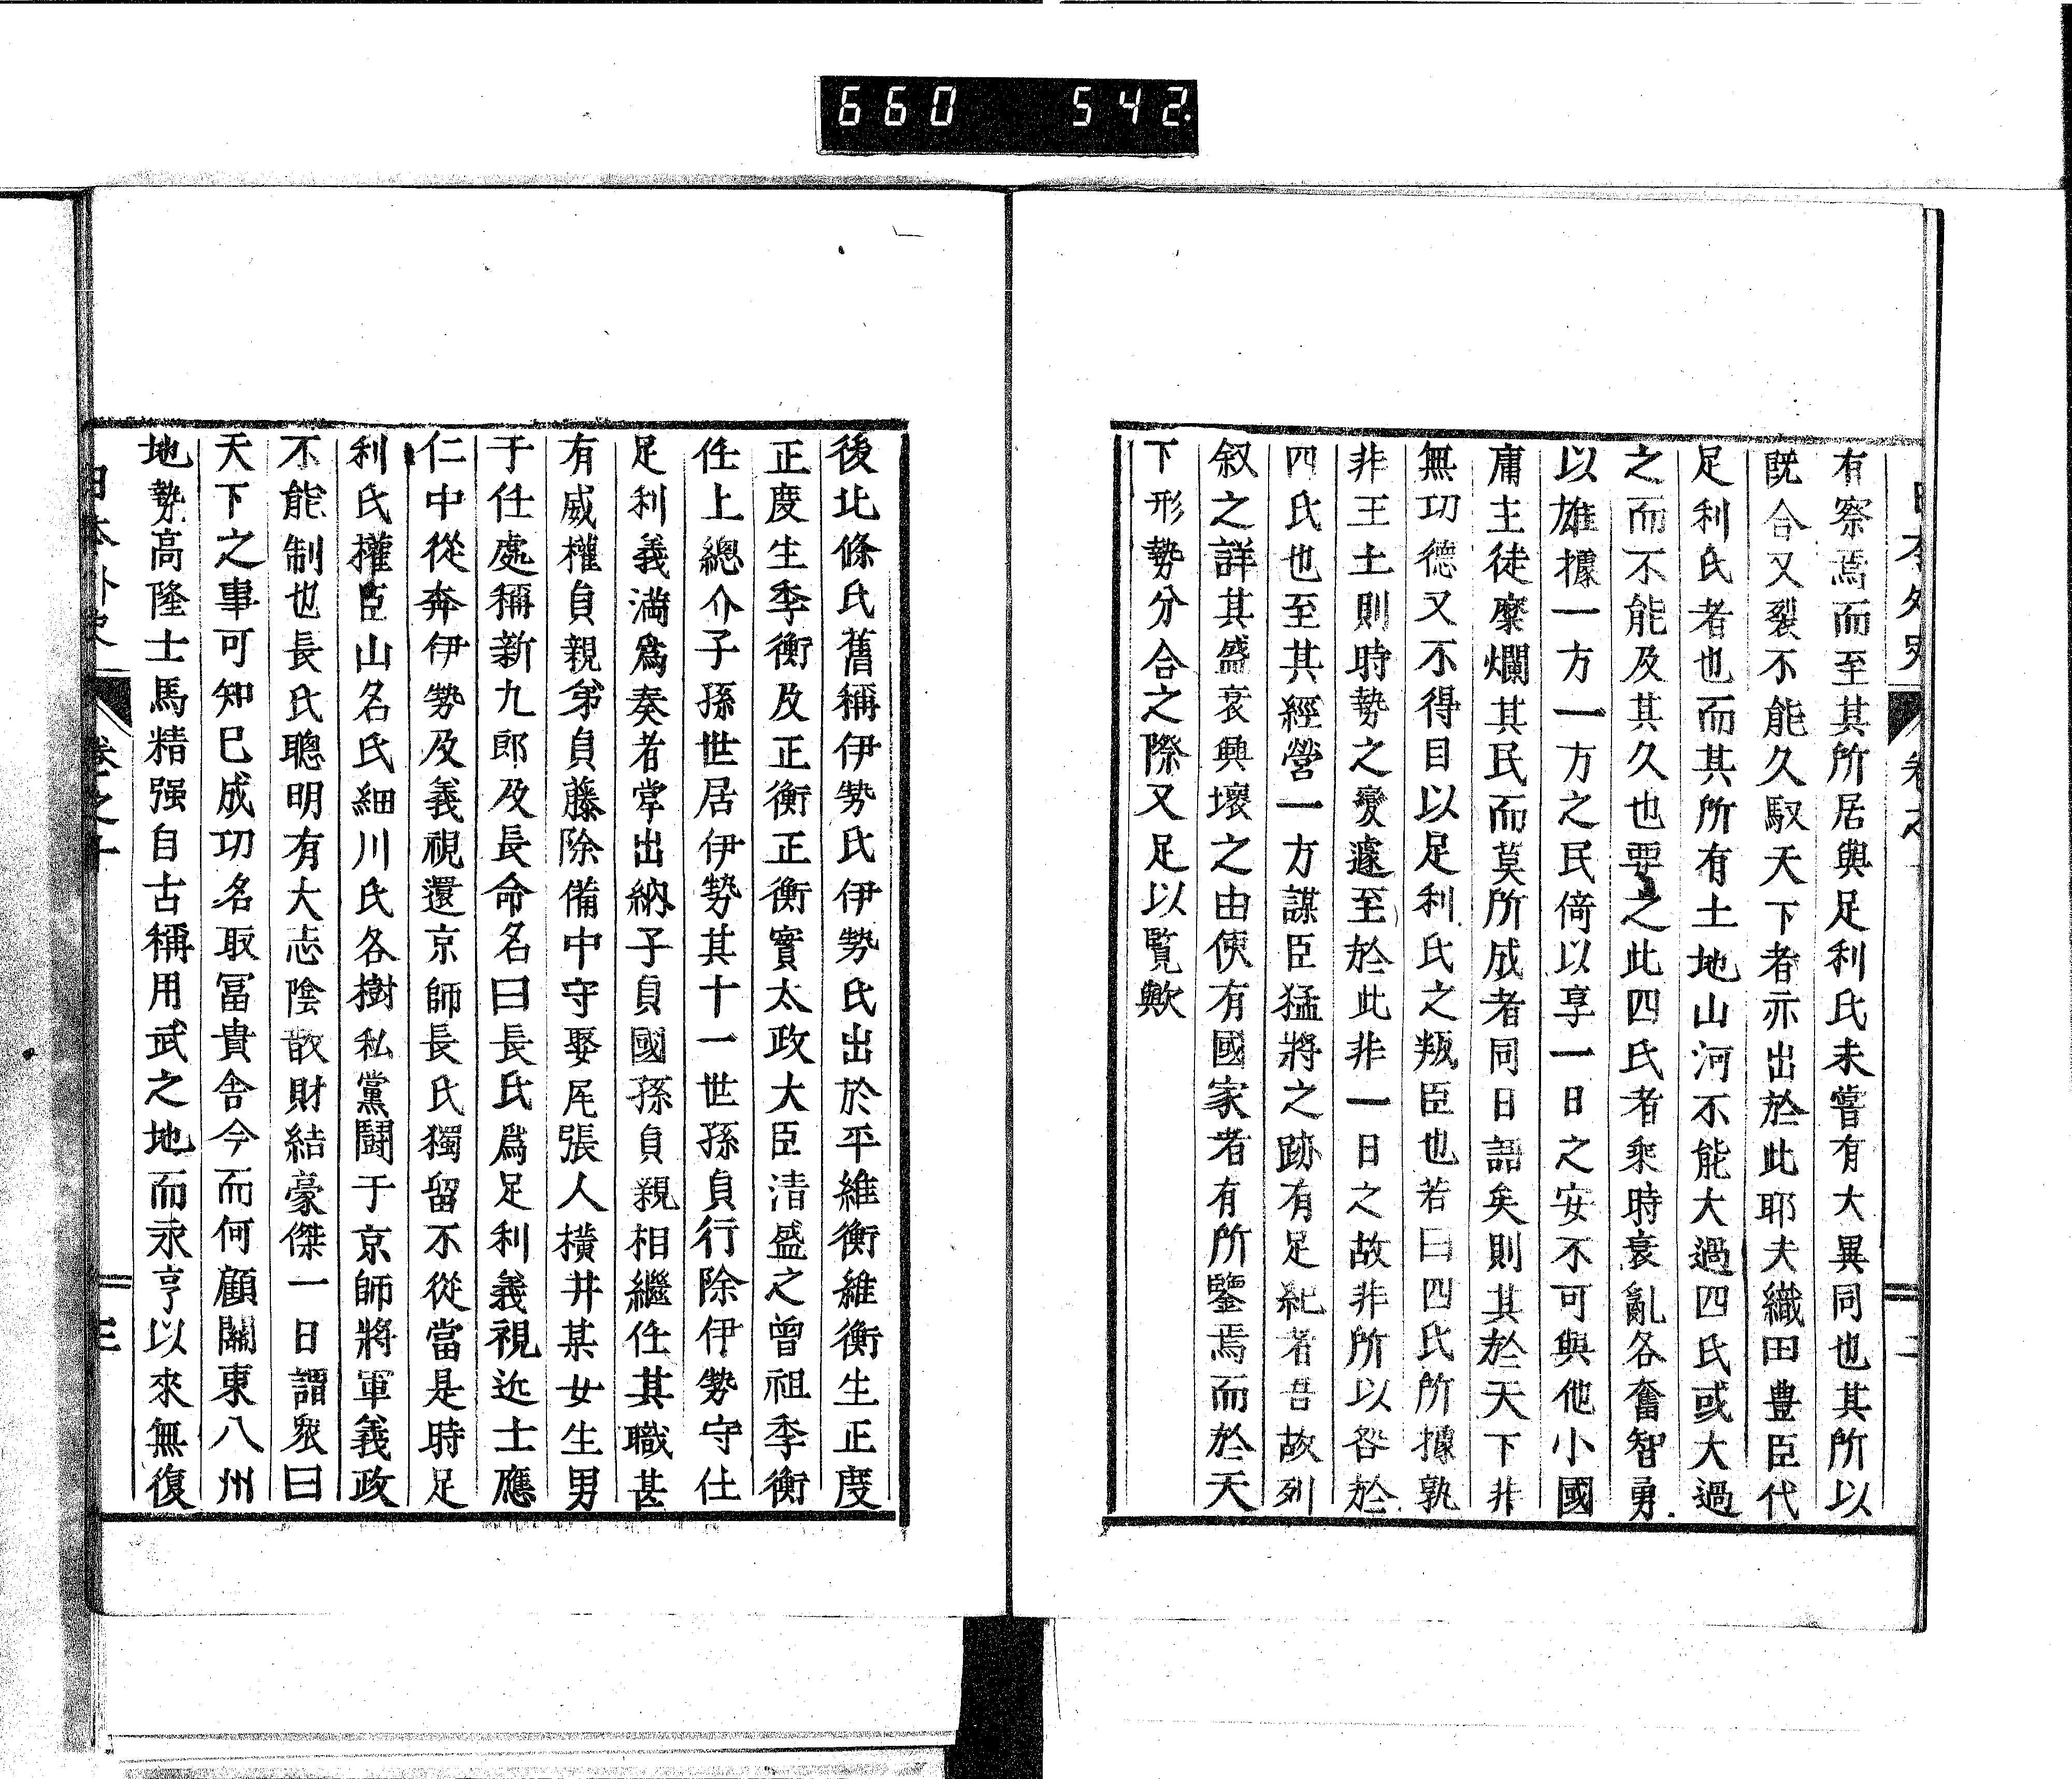 660 542.
日本外史 卷之十 二
有察焉而至其所居與足利氏未嘗有大異同也其所以
既合又裂不能久馭天下者亦出於此耶夫織田豊臣代
足利氏者也而其所有土地山河不能大過四氏或大過
之而不能及其久也要之此四氏者乘時衰亂各奮智勇
以雄據一方一方之民倚以享一日之安不可與他小國
庸主徒糜爛其民而莫所成者同日語矣則其於天下非
無功德又不得目以足利氏之叛臣也若曰四氏所據孰
非王土則時勢之變遽至於此非一日之故非所以咎於
四氏也至其經營一方謀臣猛將之跡有足紀者吾故列
叙之詳其盛衰興壞之由使有國家者有所鑒焉而於天
下形勢分合之際又足以覧歟
後北條氏舊稱伊勢氏伊勢氏出於平維衡維衡生正度
正度生季衡及正衡正衡實太政大臣清盛之曾祖季衡
任上總介子孫世居伊勢其十一世孫貞行除伊勢守仕
足利義満爲奏者掌出納子貞國孫貞親相繼任其職甚
有威權貞親弟貞藤除備中守娶尾張人橫井某女生男
于任處稱新九郎及長命名曰長氏爲足利義視近士應
仁中從奔伊勢及義視還京師長氏獨留不從當是時足
利氏權臣山名氏細川氏各樹私黨鬪于京師將軍義政
不能制也長氏聰明有大志陰散財結豪傑一日謂衆曰
天下之事可知已成功名取冨貴舎今而何顧關東八州
地勢高隆士馬精强自古稱用武之地而永亨以來無復
日本外史 卷之十 三